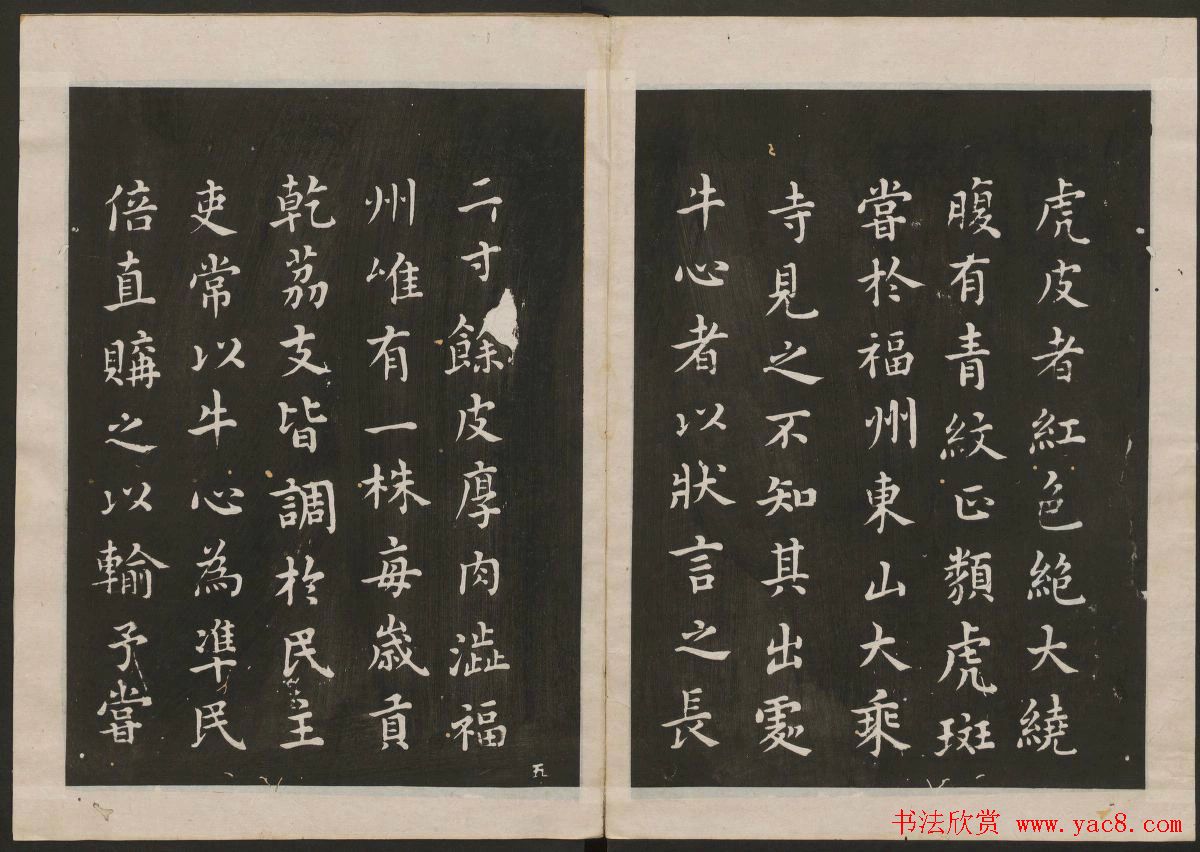 虎皮者紅色絕大繞
腹有青紋正類虎斑
嘗於福州東山大乘
寺見之不知其出處
牛心者以狀言之長
二寸餘皮厚肉澁福
州唯有一株每歲貢
乾荔支皆調於民主
吏常以牛心為準民
倍直購之以輸予嘗
五
书法欣赏 www.yac8.com